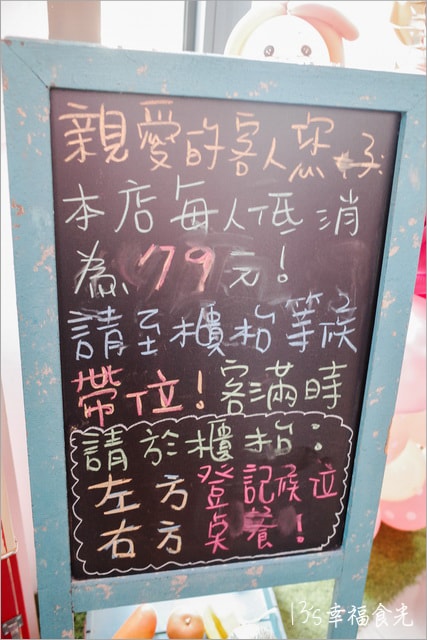 親愛的客人您好
本店每人低消
為79元!
請至櫃枱等候
帶位!客滿時
請於櫃枱:
左方登記候位
右方桌餐!
13's幸福食光